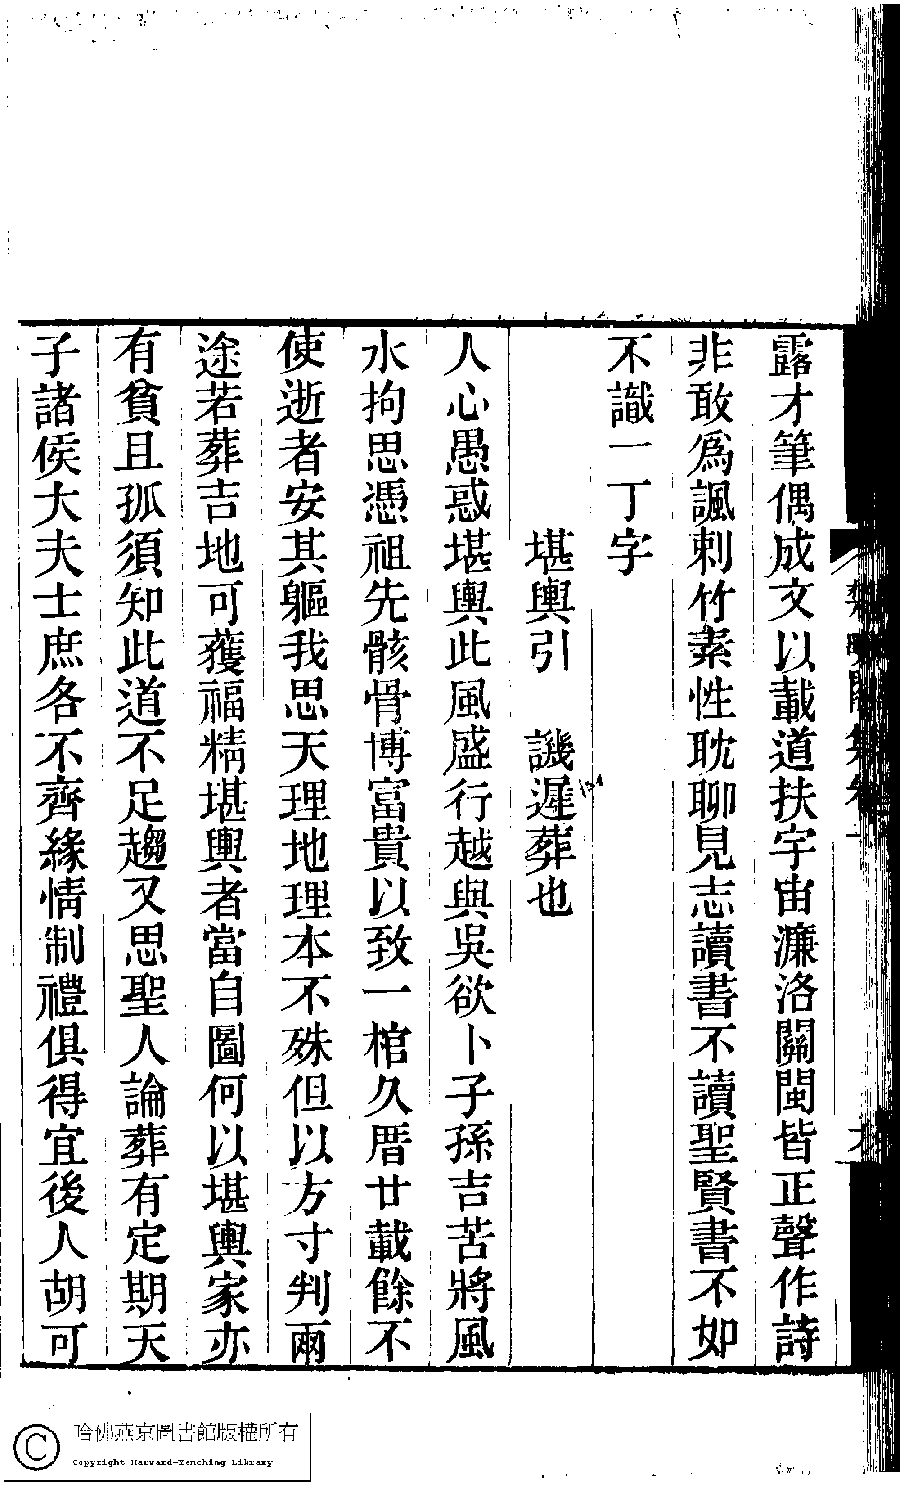 露才筆偶成文以載道扶宇宙濂洛關閩皆正聲作詩
非敢爲諷刺竹素性耽聊見志讀書不讀聖賢書不如
不識一丁字
堪輿引　譏遲葬也
人心愚惑堪輿此風盛行越與吳欲卜子孫吉苦將風
水拘思憑祖先骸骨博富貴以致一棺久厝廿載餘不
使逝者安其軀我思天理地理本不殊但以方寸判兩
途若葬吉地可獲福精堪輿者當自圖何以堪輿家亦
有貧且孤須知此道不足趨又思聖人論葬有定期天
子諸侯大夫士庶各不齊緣情制禮俱得宜後人胡可
哈佛燕京圖書館版權所有
Copyright Harvard-Yenching Library